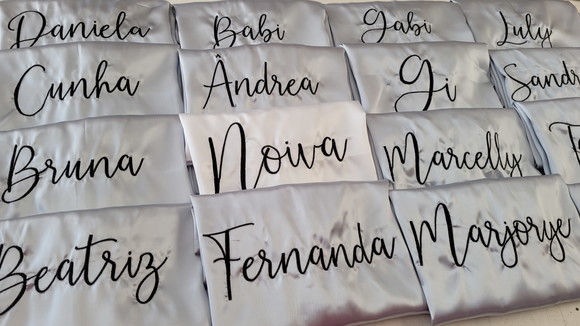 Daniela Babi Gabi Luly
Cunha Ândrea Gi Sandr
Bruna Noiva Marcelly
Beatriz Fernanda Marjorye